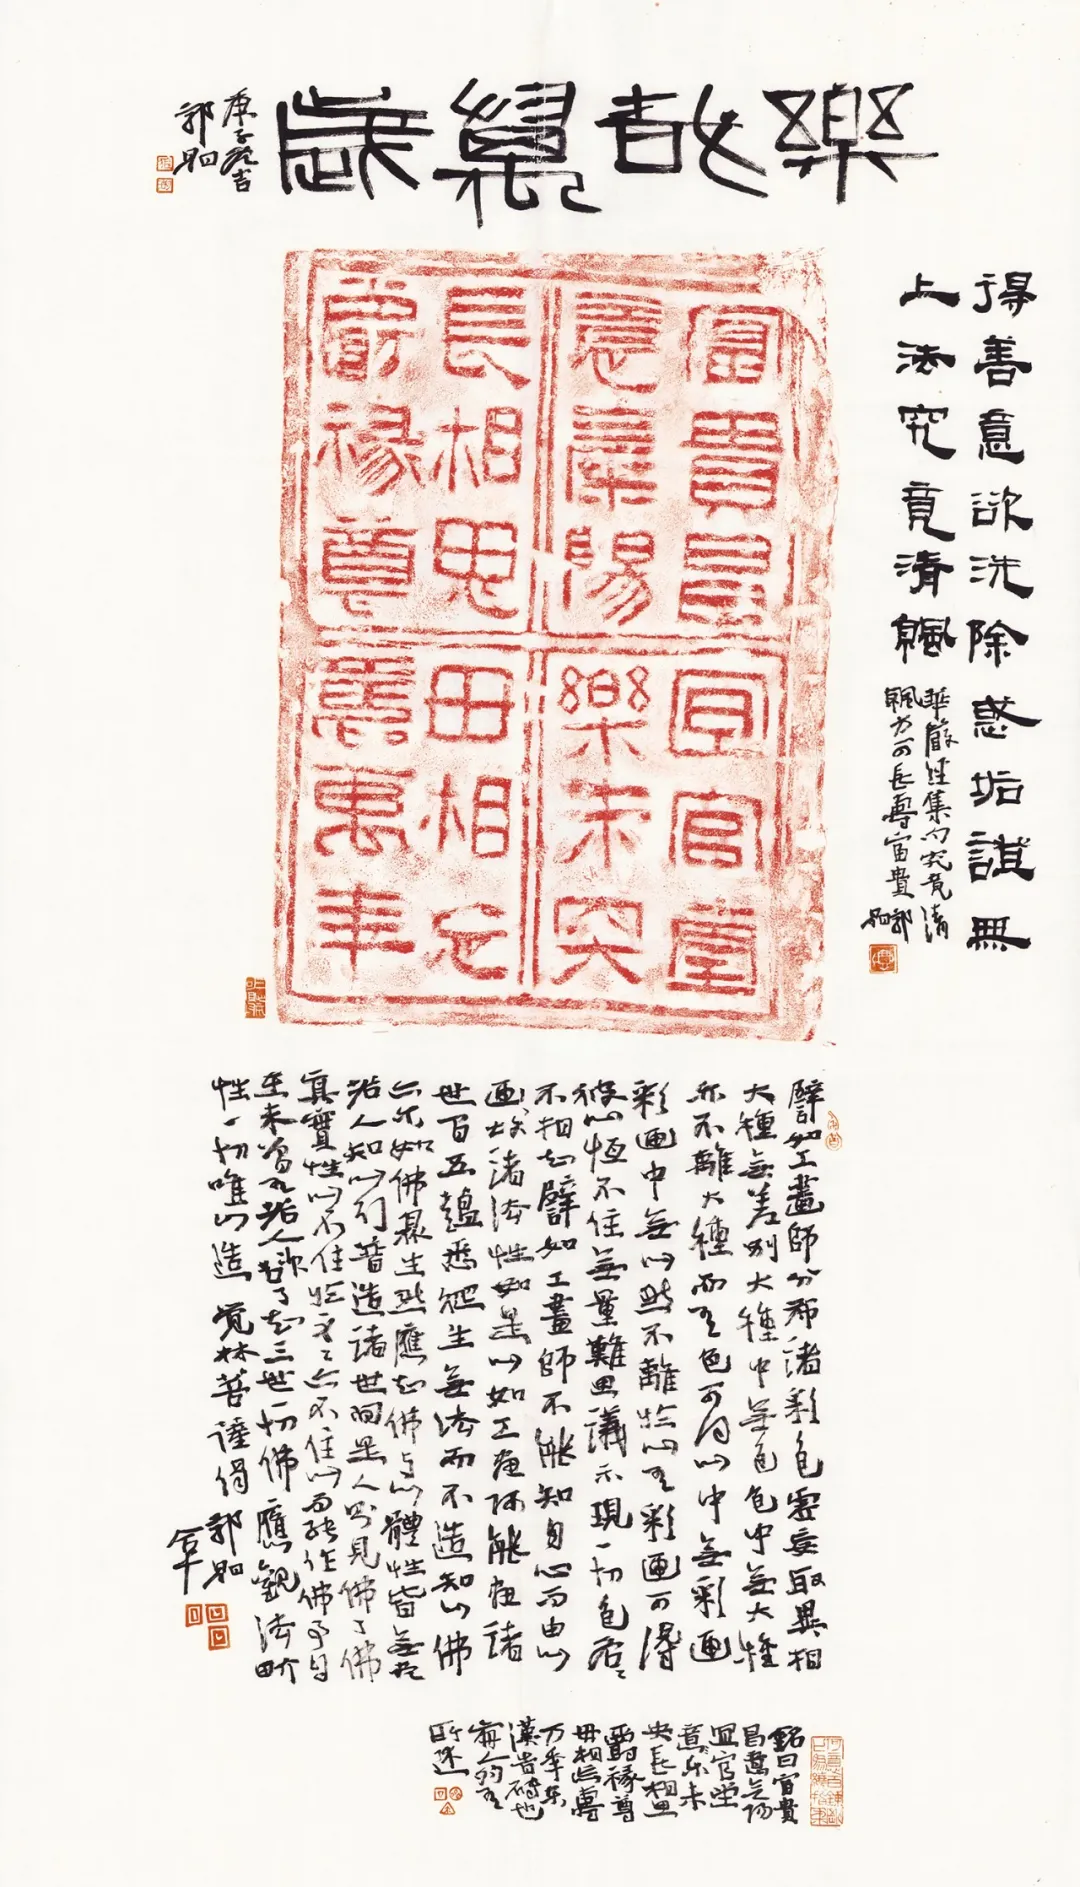 樂哉萬歲
庚子秋吉
郭
得善意欲洗除惑垢證無
上法究竟清
華嚴經集句究竟清
力可長壽富貴 郭
富貴昌宜官堂
意氣陽樂未央
長相思毋相忘
爵祿尊壽萬年
譬如工畫師分布諸彩色虛妄取異相
大種無差別大種中無色色中無大種
亦不離大種而有色可得心中無彩画
彩画中無心然不離於心有彩画可得
彼心恆不住無量難思議示現一切色各〻
不相知譬如工畫師不能知自心而由心
画故諸法性如是心如工画師能画諸
世間五蘊悉從生無法而不造如心佛
亦尔如佛眾生然應知佛与心體性皆無盡
若人知心行普造諸世間是人則見佛了佛
真實性心不住於身〻亦不住心而能作佛事自
在未曾有若人欲了知三世一切佛應觀法界
性一切唯心造 覺林菩薩偈 郭
合十
銘曰富貴
昌
宜官堂
意樂未
央長相思
爵祿尊
毋相忘壽
万年東
漢吉磚也